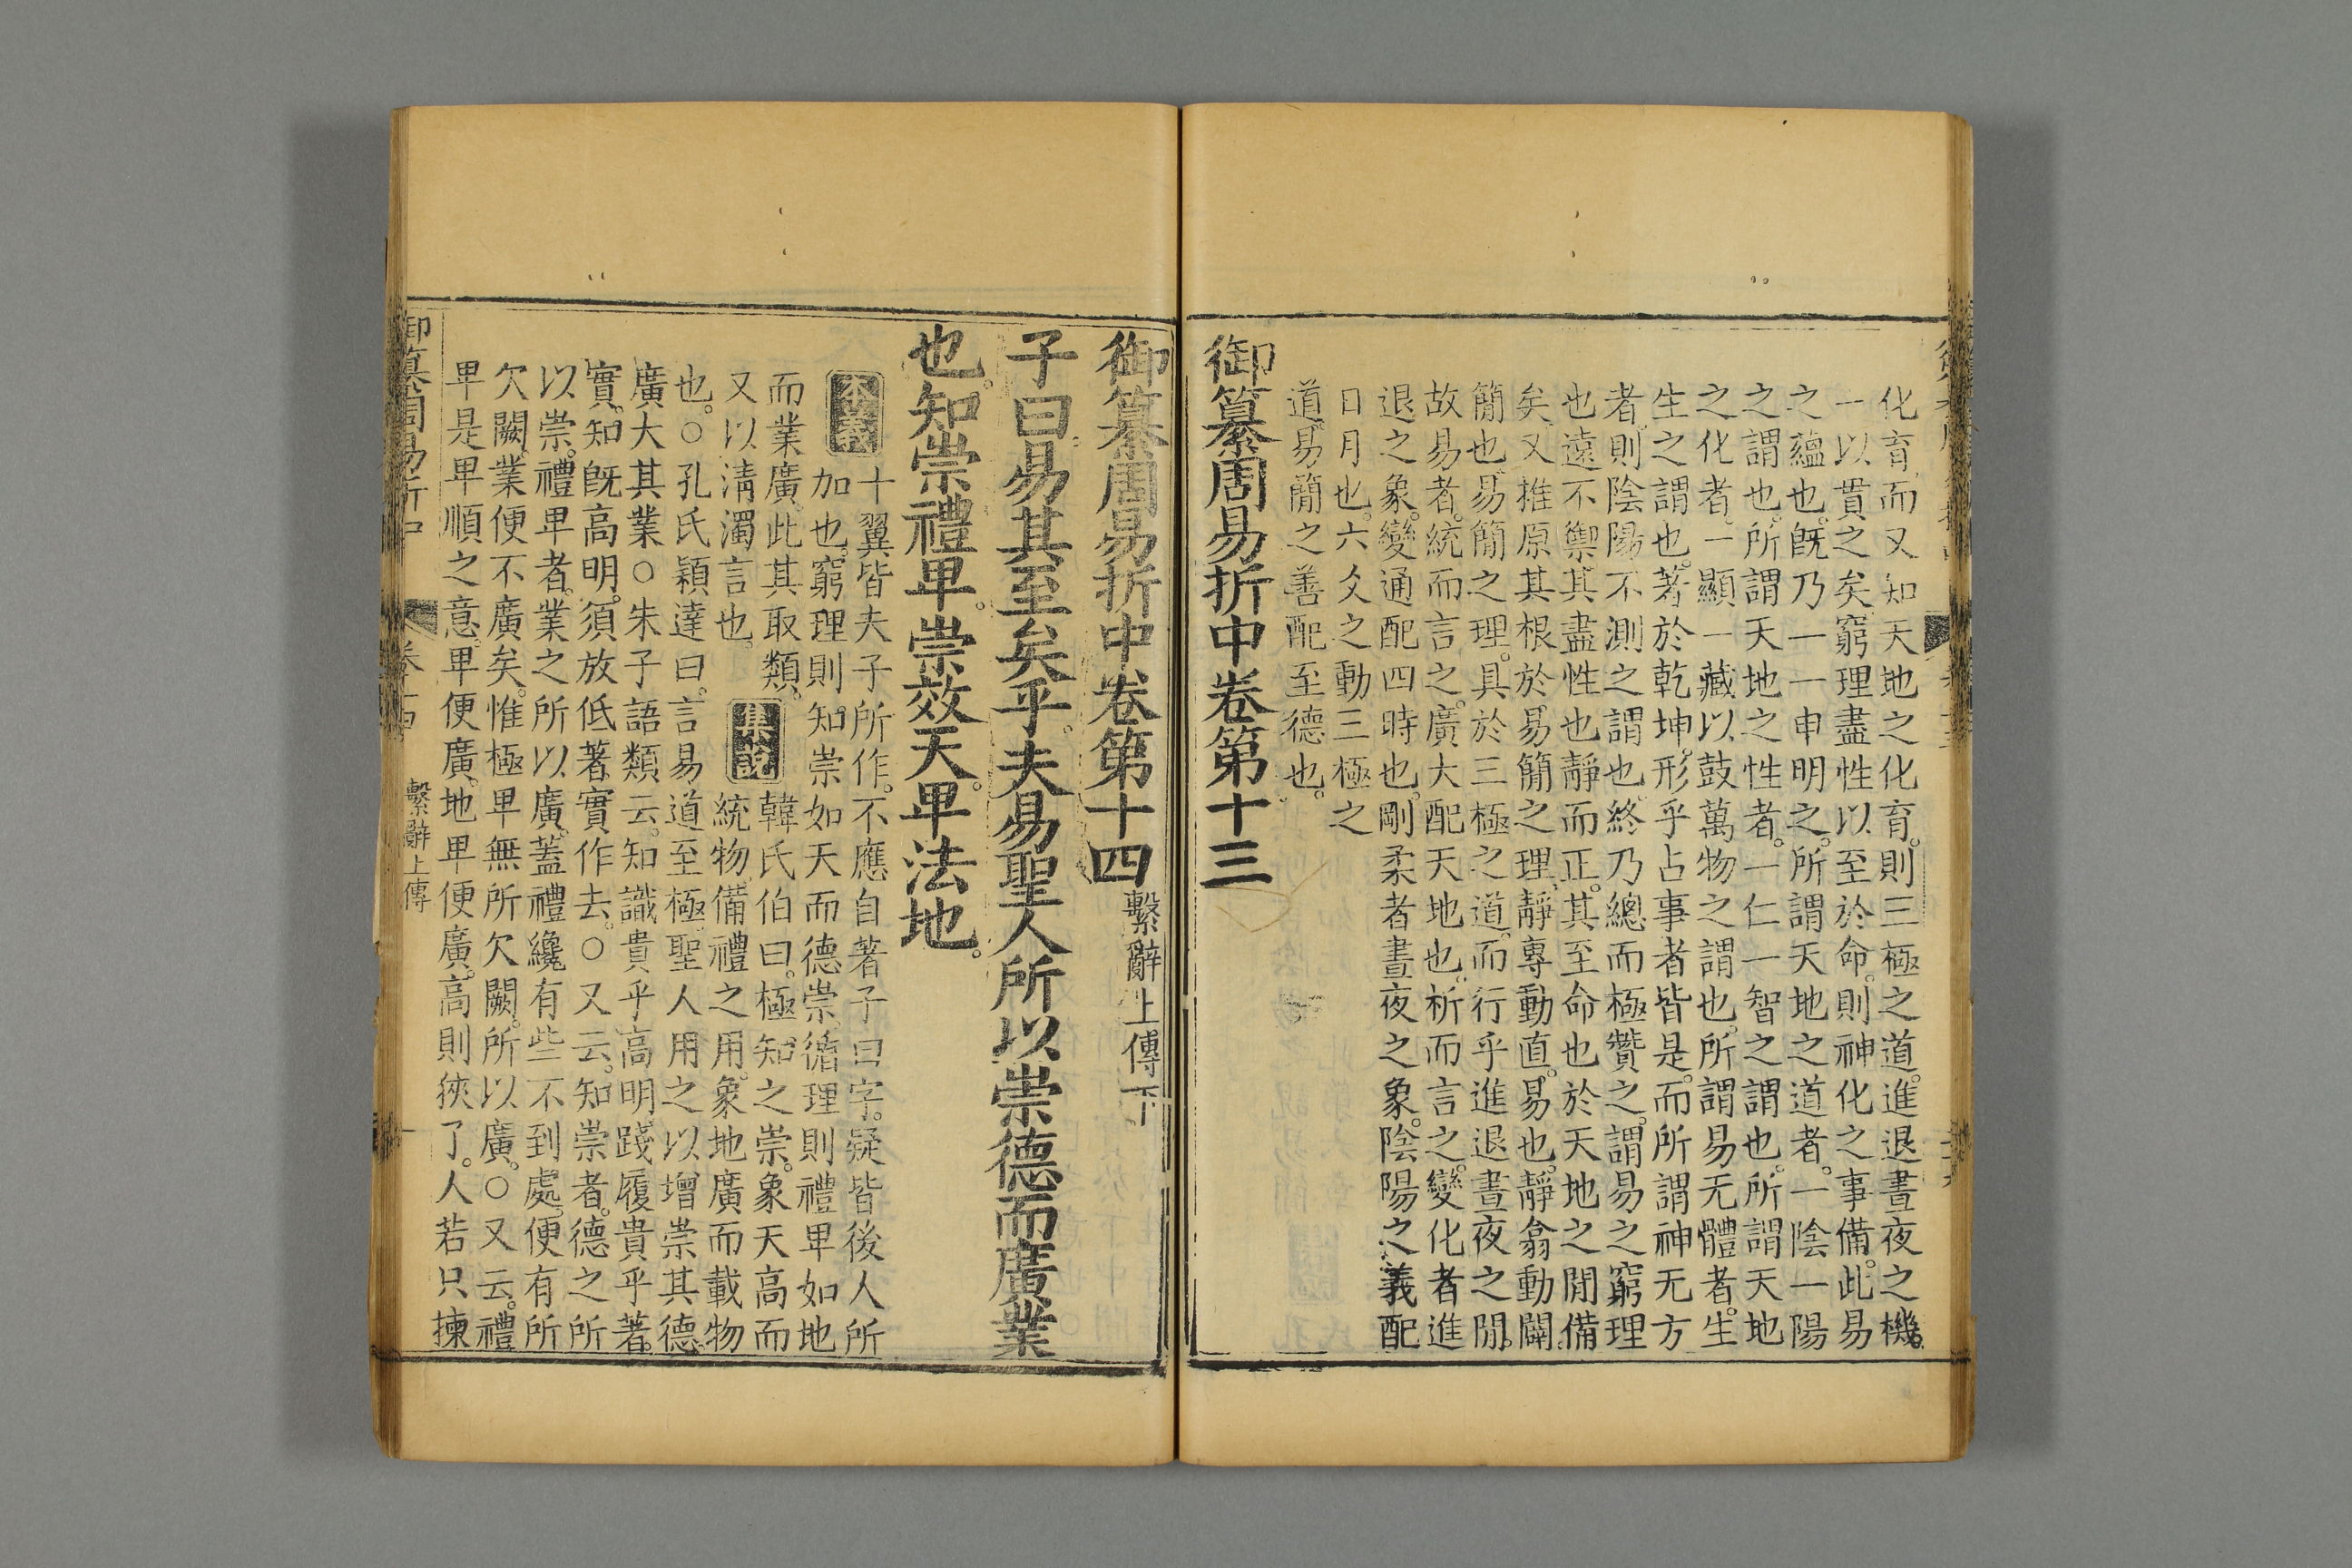 化育而又知天地之化育。則三極之道。進退晝夜之機。
一以貫之矣。窮理盡性以至於命。則神化之事備。此易
之蘊也。旣乃一一申明之。所謂天地之道者。一陰一陽
之謂也。所謂天地之性者。一仁一智之謂也。所謂天地
之化者。一顯一藏以鼓萬物之謂也。所謂易无體者。生
生之謂也。著於乾坤。形乎占事者皆是。而所謂神无方
者。則陰陽不測之謂也。終乃總而極贊之。謂易之窮理
也遠不禦。其盡性也靜而正。其至命也於天地之閒備
矣。又推原其根於易簡之理。靜專動直。易也。靜翕動闢。
簡也。易簡之理。具於三極之道。而行乎進退晝夜之閒。
故易者。統而言之。廣大配天地也。析而言之。變化者進
退之象。變通配四時也。剛柔者晝夜之象。陰陽之義配
日月也。六爻之動三極之
道。易簡之善配至德也。
御纂周易折中卷第十三
御纂周易折中卷第十四 繫辭上傳下
子曰。易其至矣乎。夫易聖人所以崇德而廣業
也。知崇禮卑。崇效天。卑法地。
本義 十翼皆夫子所作。不應自著子曰字。疑皆後人所
加也。窮理則知崇如天而德崇。循理則禮卑如地
而業廣。此其取類。
又以淸濁言也。 集說 韓氏伯曰。極知之崇。象天高而
統物。備禮之用。象地廣而載物
也。○孔氏穎達曰。言易道至極。聖人用之以增崇其德
廣大其業○朱子語類云。知識貴乎高明。踐履貴乎著
實。知旣高明。須放低著實作去。○又云。知崇者。德之所
以崇。禮卑者。業之所以廣。蓋禮纔有些不到處。便有所
欠闕。業便不廣矣。惟極卑無所欠闕。所以廣。○又云。禮
卑是卑順之意。卑便廣。地卑便廣。高則狹了。人若只揀
御纂周易折中 卷十四 繫辭上傳 一